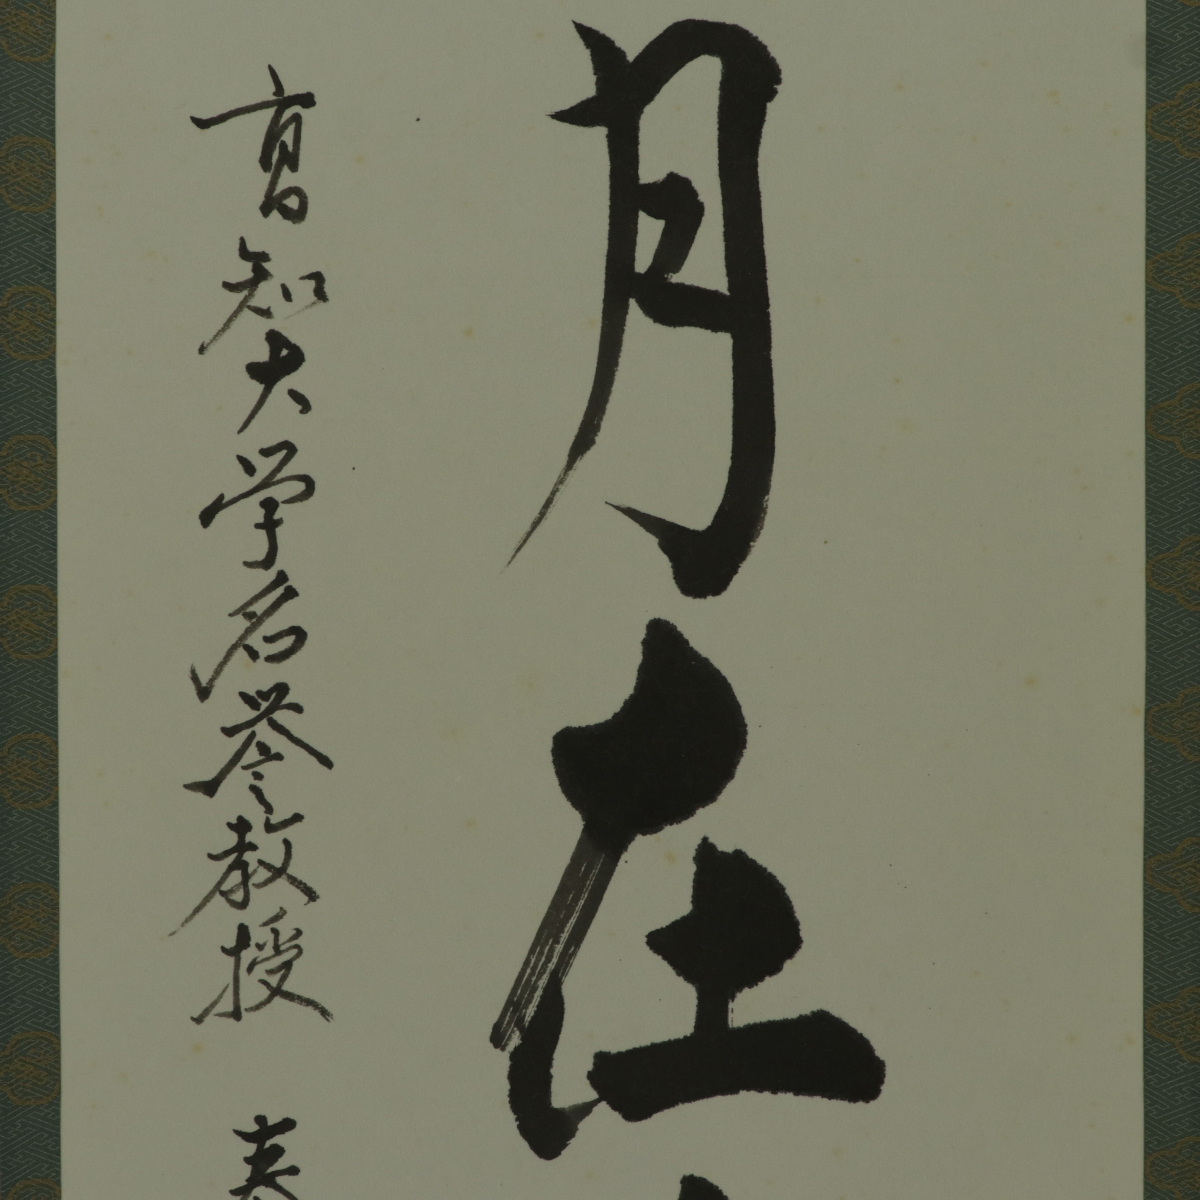 月在
高知大学名誉教授